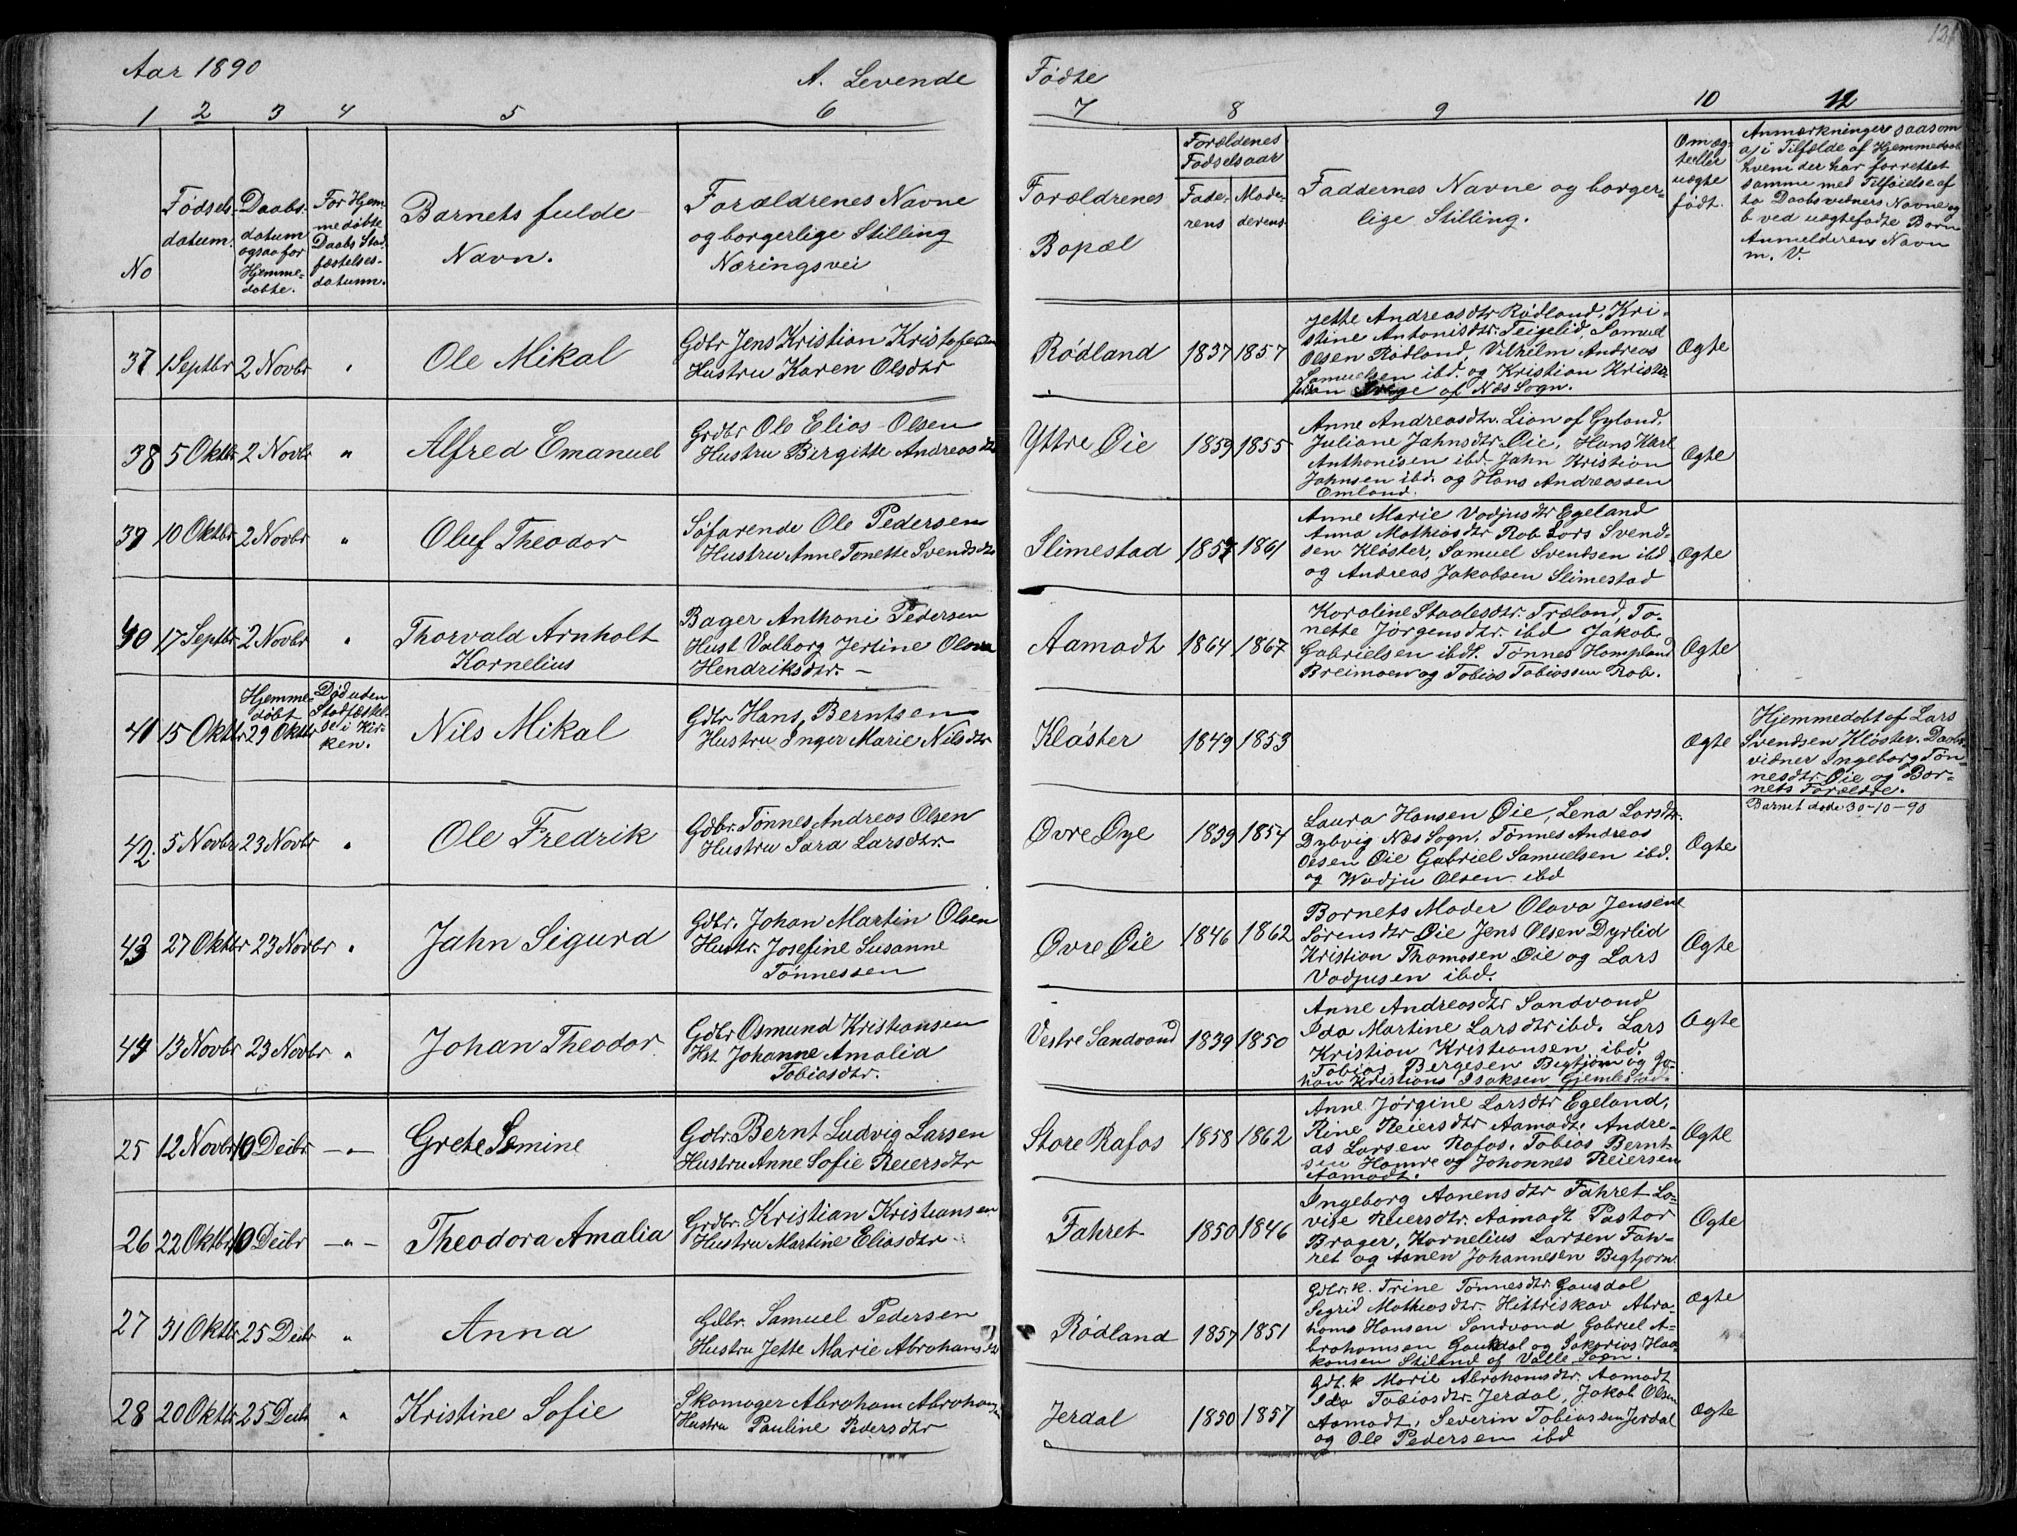 121
Aar 1890
A. Levende Fødte
1 2 3 4 5 6 7 8 9 10 12
No
Fødsels-
datum.
Daabs-
datum
ogsaa for
Hjemme-
døbte.
For Hjem-
medøbte
Daabs Stad
fæstelses-
datum.
Barnets fulde
Navn.
Forældrenes Navne
og borgerlige Stilling
Næringsvei
Forældrenes
Bopæl
Forældenes
Fødselsaar
Fade-
rens
Mode-
derens
Faddernes Navne og borger-
lige Stilling.
Om æg-
te eller
uægte
født.
Anmærkninger saasom
a, i Tilfælde af Hjemmedaab
hvem der har forrettet
samme med Tilføielse af
to Daabsvidners Navne og
b ved uægtefødte Børn
Anmelderens Navn
m. V.
37 1 Septbr 2 Novbr " Ole Mikal
Gdbr Jens Kristian Kristofersen
Hustru Karen Olsdtr
Rødland 1837 1857
Jette Andreasdtr Rødland, Kri-
stine Antonisdtr. Teigelid, Samuel
Olsen Rødland, Vilhelm Andreas
Samuelsen ibd. og Kristian Kristof-
fersen af Næs Sogn.
Ægte
38 5 Oktbr 2 Novbr " Alfred Emanuel
Grdbr Ole Elias Olsen
Hustru Birgitte Andreasdtr
Yttre Øie 1859 1855
Anne Andreasdtr. Lian af Gyland,
Juliane Jahnsdtr. Øie, Hans Karl
Anthonisen ibd. Jahn Kristian
Jahnsen ibd. og Hans Andreassen
Omland.
Ægte
39 10 Oktbr 2 Novbr " Oluf Theodor
Søfarende Ole Pedersen
Hustru Anne Tonette Svendsdtr
Slimestad 1857 1861
Anne Marie Vodjusdtr Egeland
Anna Mathiasdtr Rob. Lars Svend-
sen Kløster, Samuel Svendsen ibd
og Andreas Jakobsen Slimestad
Ægte
40 17 Septbr 2 Novbr " Thorvald Arnholt
Kornelius
Bager Anthoni Pedersen
Hust Valborg Jertine Olava
Hendriksdtr. -
Aamodt 1864 1867
Karoline Staalesdtr. Træland, To-
nette Jørgensdtr. ibd Jakob
Gabrielsen ibdt. Tønnes Hompland
Breimoen og Tobias Tobiassen Rob.
Ægte
41 15 Oktbr
Hjemme-
døbt
29 Oktbr
Død uden
Stadfæstel-
se i Kir-
ken.
Nils Mikal
Gdbr Hans Berntsen
Hustru Inger Marie Nilsdtr
Kløster 1849 1853
Ægte
Hjemmedøbt af Lars
Svendsen Kløster. Daabs-
vidner Ingeborg Tøn-
nesdtr. Øie og Bar-
nets Forældre.
Barnet døde 30-10-90
42. 5 Novbr 23 Novbr " Ole Fredrik
Gdbr. Tønnes Andreas Olsen
Hustru Sara Larsdtr.
Øvre Øye 1839 1854
Laura Hansen Øie, Lena Larsdtr.
Dybvig Næs Sogn, Tønnes Andreas
Olsen Øie Gabriel Samuelsen ibd.
og Wodju Olsen ibd
Ægte
43 27 Oktbr 23 Novbr " Jahn Sigurd
Gdbr. Johan Martin Olsen
Hustr. Josefine Susanne
Tønnessen
Øvre Øie 1846 1862
Barnets Moder Olava Jensene
Sørensdtr Øie Jens Olsen Dyrlid
Kristian Thomasen Øie og Lars
Vodjusen ibd.
Ægte
44 13 Novbr 23 Novbr " Johan Theodor
Gdbr Osmund Kristiansen
Hst Johanne Amalia
Tobiasdtr.
Vestre Sandvand 1839 1850
Anne Andreasdtr Sandvand
Ida Martine Larsdtr ibd. Lars
Kristian Kristiansen ibd.
Tobias Bergesen Bigtjørn og Jo-
han Kristians Isaksen Gjemlestad.
Ægte
25 12 Novbr 10 Decbr - " - Grete Semine
Gdbr. Bernt Ludvig Larsen
Hustru Anne Sofie Reiersdtr
Store Rafos 1858 1862
Anne Jørgine Larsdtr Egeland,
Rine Reiersdtr Aamodt. Andre-
as Larsen Rafos. Tobias Bernt
sen Hamre og Johannes Reiersen
Aamodt.
Ægte
26 22 Oktbr 10 Decbr - " - Theodora Amalia
Grdbr. Kristian Kristiansen
Hustru Martine Eliasdtr
Fahret 1850 1846
Ingeborg Aanensdtr Fahret Lo-
vise Reiersdtr. Aamodt Pastor
Brager, Kornelius Larsen Fah-
ret og Aanen Johannesen Bigtjørn
Ægte
27 31 Oktbr 25 Decbr " Anna
Gdbr. Samuel Pedersen
Hustru Jette Marie Abrahamsdtr
Rødland 1857 1851
Gdbr.k. Trine Tønnesdtr. Gausdal
Segrid Mathiasdtr. Hittriskav Abra-
hams Hansen Sandvand Gabriel A-
brahamsen Gausdal og Sakarias Haa-
konsen Stiland af Valle Sogn.
Ægte
28 20 Oktbr 25 Decbr " Kristine Sofie
Skomager Abraham Abrahamsen
Hustru Pauline Pedersdtr
Jerdal 1850 1857
Gdb.k Marie Abrahamsdtr. Aamodt
Ida Tobiasdtr. Jerdal, Jakob Olsen
Aamodt, Severin Tobiassen Jerdal
og Ole Pedersen ibd
Ægte